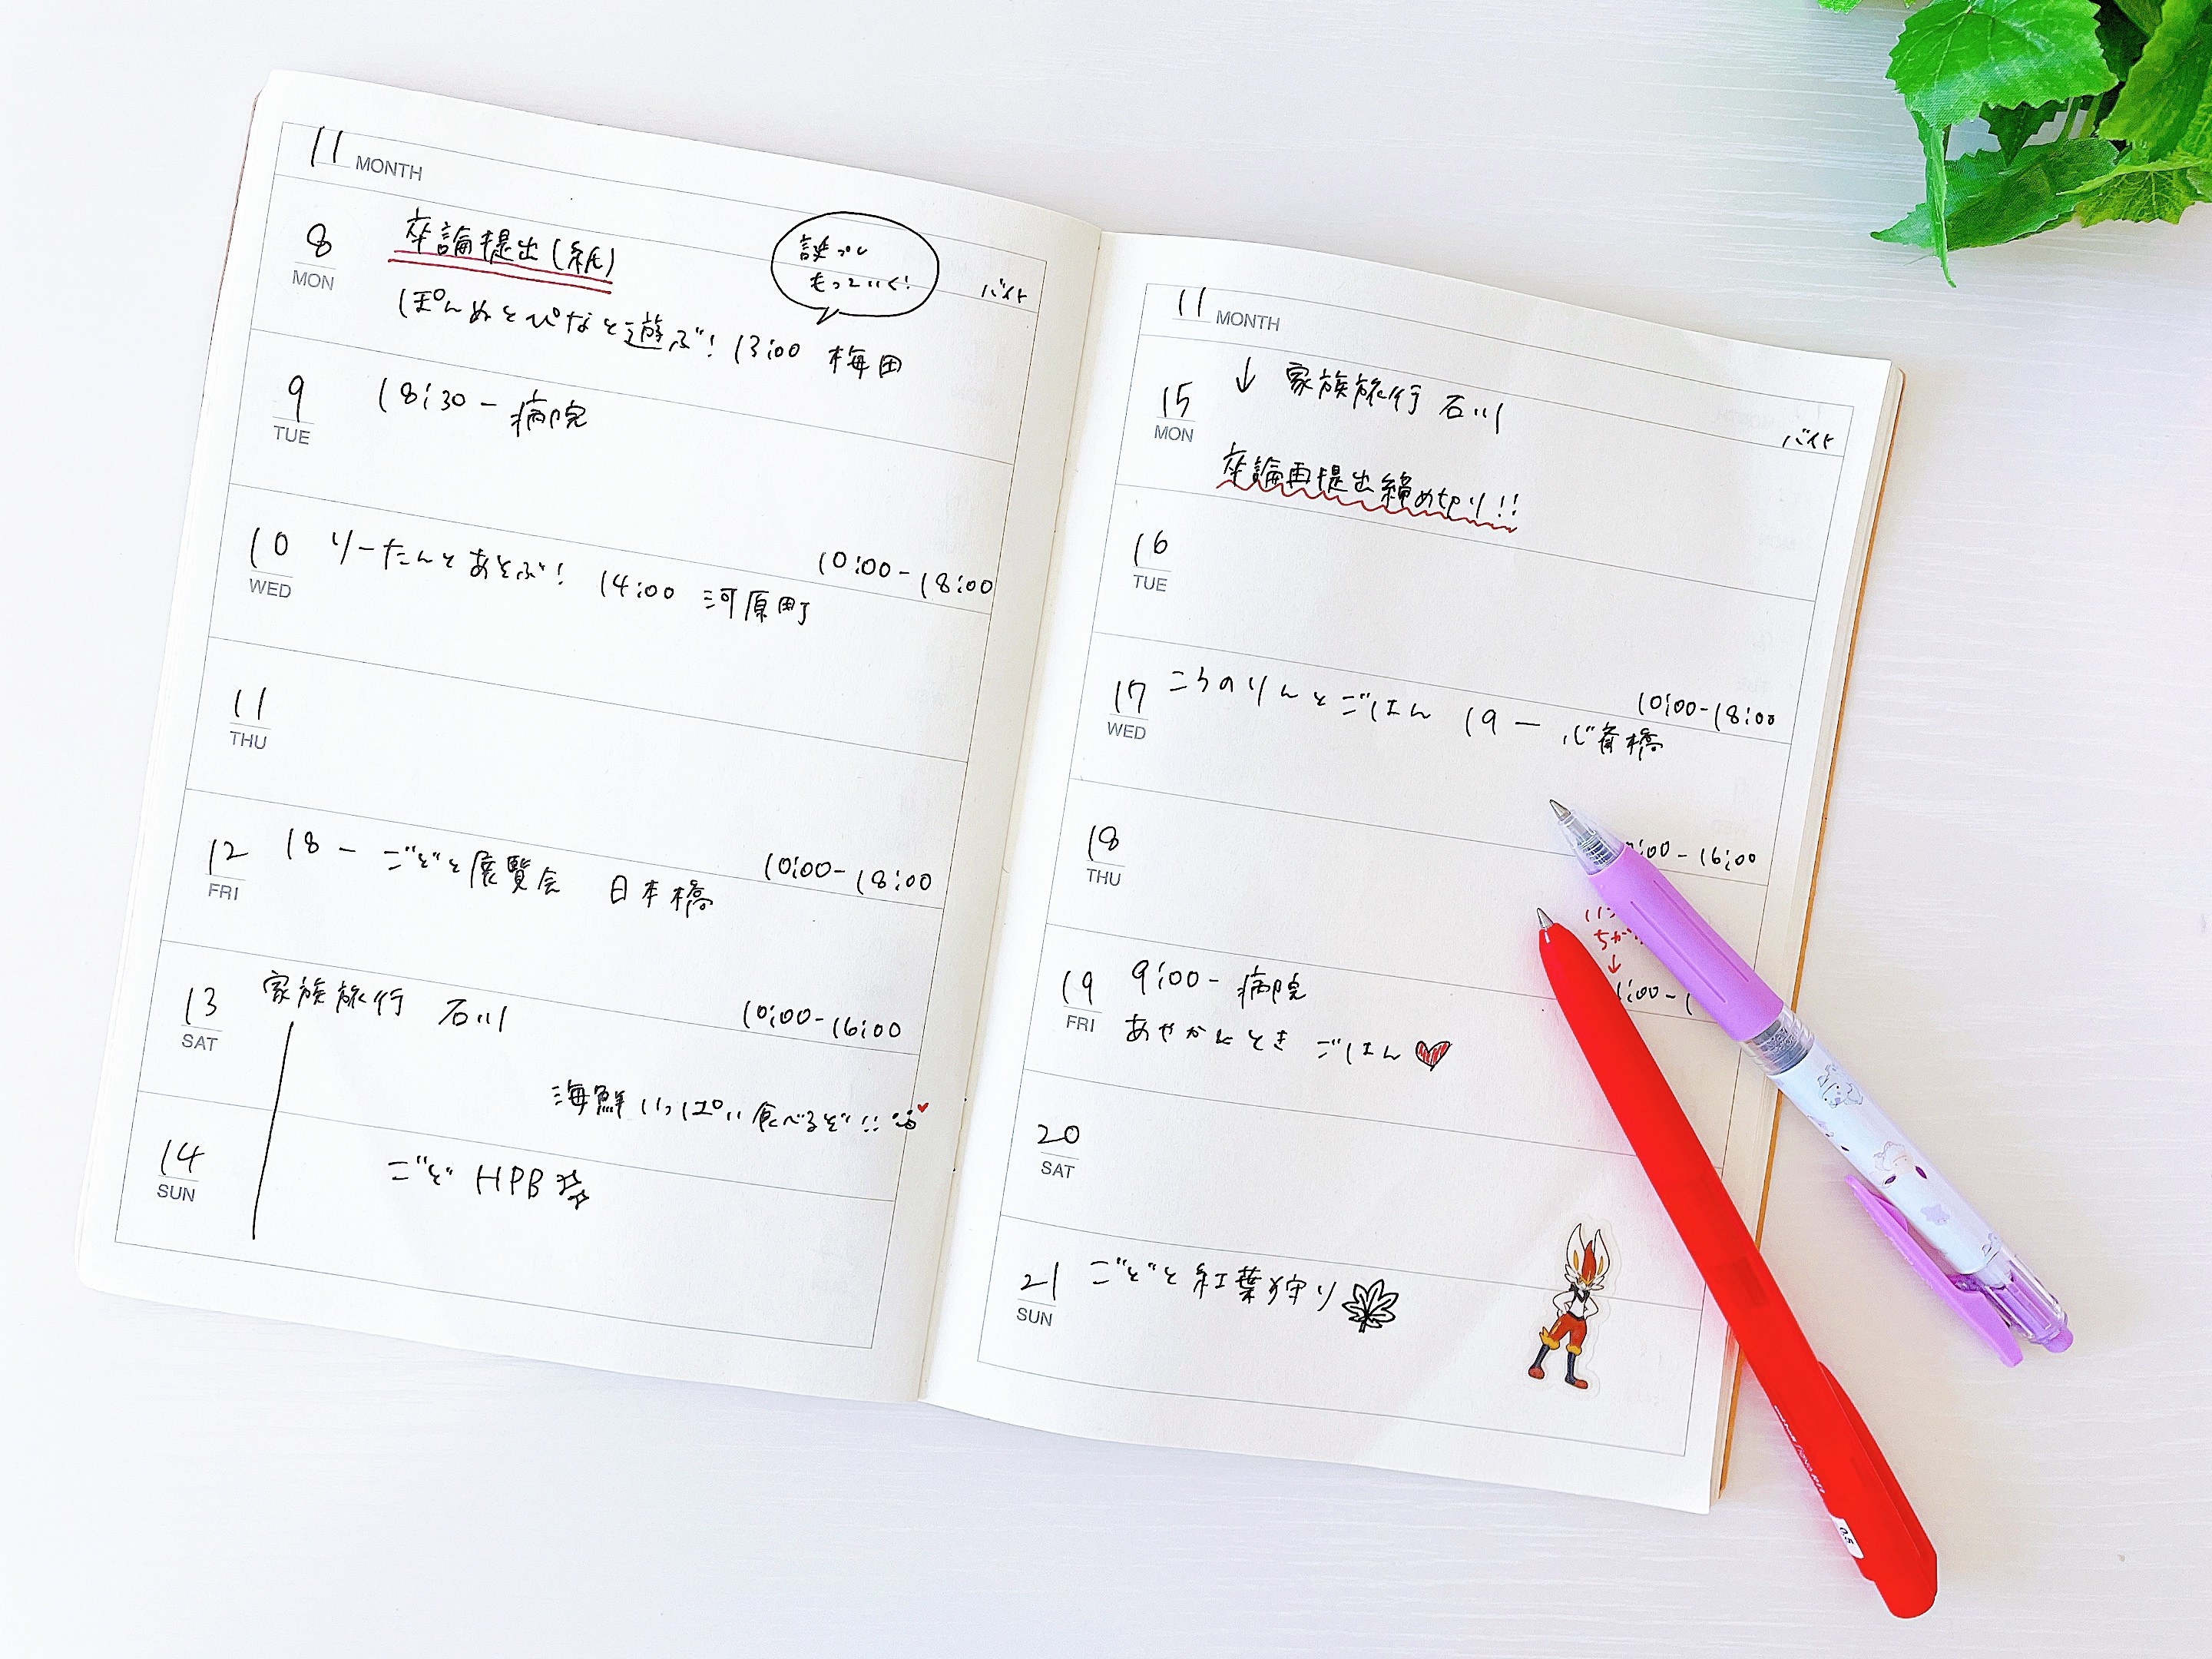 11 MONTH
バイト
8 MON
卒論提出(紙)
誕プレ
もっていく!
ぽんぬとぴなと遊ぶ! 13:00 梅田
9 TUE
18:30- 病院
10 WED
10:00-18:00
りーたんとあそぶ! 14:00 河原町
11 THU
12 FRI
10:00-18:00
18- ごどと展覧会 日本橋
13 SAT
10:00-16:00
家族旅行 石川
海鮮いっぱい食べるぞ!!
14 SUN
ごど HPB
11 MONTH
バイト
15 MON
↓ 家族旅行 石川
卒論再提出締め切り!!
16 TUE
17 WED
10:00-18:00
こうのりんとごはん 19- 心斎橋
18 THU
:00-16:00
19 FRI
↓
:00-1
9:00- 病院
ごはん
20 SAT
21 SUN
ごどと紅葉狩り
0.5